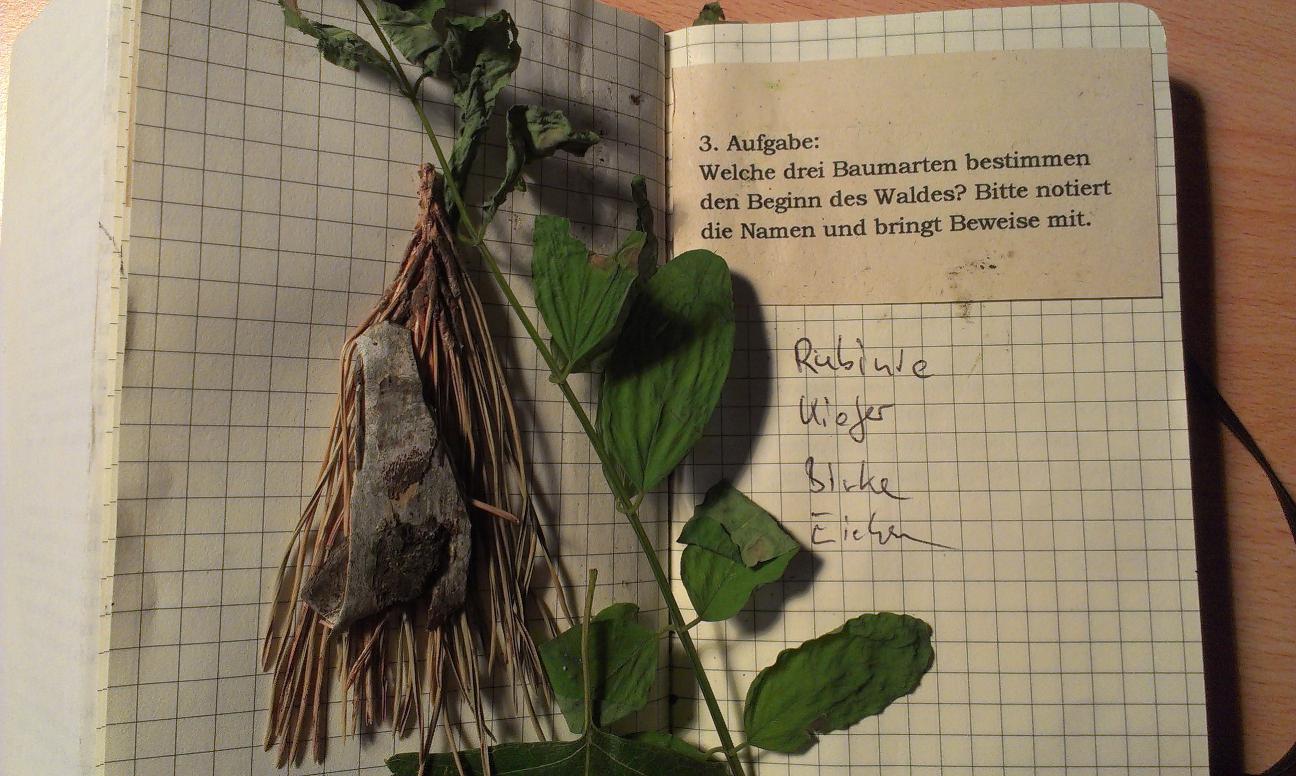 3. Aufgabe:
Welche drei Baumarten bestimmen
den Beginn des Waldes? Bitte notiert
die Namen und bringt Beweise mit.
Rubinie
Kiefer
Birke
Eichen